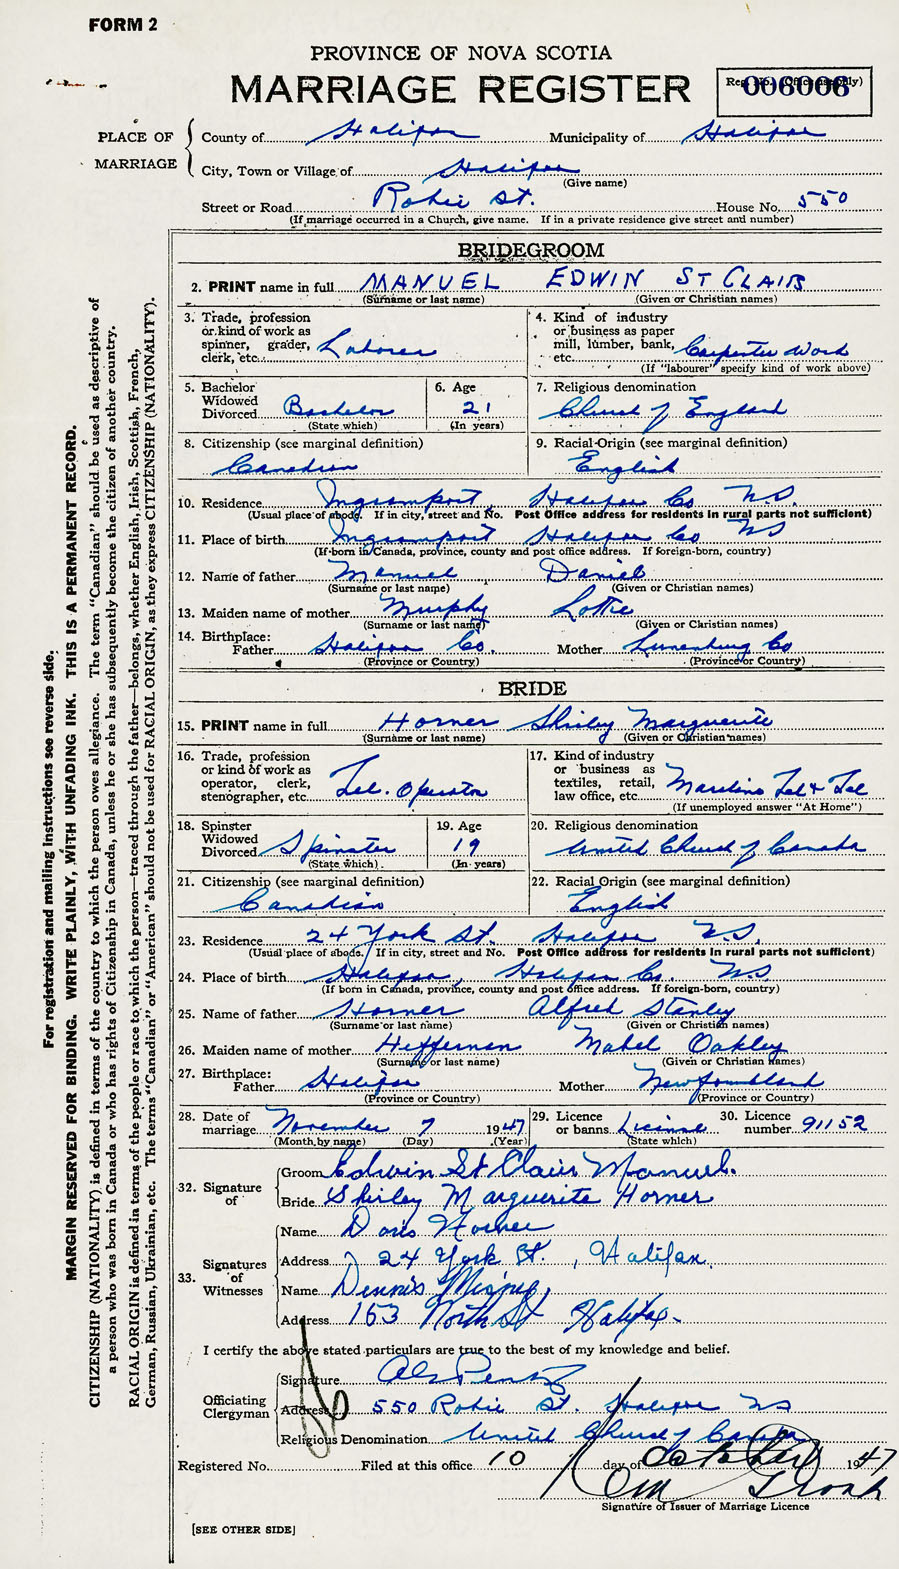 FORM 2
PROVINCE OF NOVA SCOTIA
MARRIAGE REGISTER
Reg. No. (Office use only)
006006
PLACE OF MARRIAGE
County of Halifax Municipality of Halifax
City, Town or Village of Halifax
(Give name)
Street or Road Robie St. House No. 550
(If marriage occurred in a Church, give name. If in a private residence give street and number)
BRIDEGROOM
2. PRINT name in full MANUEL EDWIN ST CLAIR
(Surname or last name) (Given or Christian names)
3. Trade, profession or kind of work as spinner, grader, clerk, etc. Laborer
4. Kind of industry or business as paper mill, lumber, bank, etc. Carpenter Work
(If "labourer" specify kind of work above)
5. Bachelor Widowed Divorced Bachelor
(State which)
6. Age 21
(In years)
7. Religious denomination Church of England
8. Citizenship (see marginal definition) Canadian
9. Racial Origin (see marginal definition) English
10. Residence Ingramport, Halifax Co NS.
(Usual place of abode. If in city, street and No. Post Office address for residents in rural parts not sufficient)
11. Place of birth Ingramport Halifax Co NS
(If born in Canada, province, county and post office address. If foreign-born, country)
12. Name of father Manuel Daniel
(Surname or last name) (Given or Christian names)
13. Maiden name of mother Murphy Lottie
(Surname or last name) (Given or Christian names)
14. Birthplace:
Father Halifax Co. Mother Lunenburg Co
(Province or Country) (Province or Country)
BRIDE
15. PRINT name in full Horner Shirley Marguerite
(Surname or last name) (Given or Christian names)
16. Trade, profession or kind of work as operator, clerk, stenographer, etc. Tel. Operator
17. Kind of industry or business as textiles, retail, law office, etc. Maritime Tel & Tel
(If unemployed answer "At Home")
18. Spinster Widowed Divorced Spinster
(State which)
19. Age 19
(In years)
20. Religious denomination United Church of Canada
21. Citizenship (see marginal definition) Canadian
22. Racial Origin (see marginal definition) English
23. Residence 24 York St. Halifax N.S.
(Usual place of abode. If in city, street and No. Post Office address for residents in rural parts not sufficient)
24. Place of birth Halifax, Halifax Co. N.S
(If born in Canada, province, county and post office address. If foreign-born, country)
25. Name of father Horner Alfred Stanley
(Surname or last name) (Given or Christian names)
26. Maiden name of mother Heffernan Mabel Oakley
(Surname or last name) (Given or Christian names)
27. Birthplace:
Father Halifax Mother Newfoundland
(Province or Country) (Province or Country)
28. Date of marriage November 7 1947
(Month by name) (Day) (Year)
29. Licence or banns License
(State which)
30. Licence number 91152
32. Signature of
Groom Edwin St Clair Manuel.
Bride Shirley Marguerite Horner
33. Signatures of Witnesses
Name Doris Horner
Address 24 York St., Halifax.
Name Dennis
Address 163 North St Halifax.
I certify the above stated particulars are true to the best of my knowledge and belief.
Officiating Clergyman
Signature
Address 550 Robie St. Halifax NS
Religious Denomination United Church of Canada
Registered No. Filed at this office 10 day of October 1947
Signature of Issuer of Marriage Licence
[SEE OTHER SIDE]
For registration and mailing instructions see reverse side.
MARGIN RESERVED FOR BINDING. WRITE PLAINLY, WITH UNFADING INK. THIS IS A PERMANENT RECORD.
CITIZENSHIP (NATIONALITY) is defined in terms of the country to which the person owes allegiance. The term "Canadian" should be used as descriptive of
a person who was born in Canada or who has rights of Citizenship in Canada, unless he or she has subsequently become the citizen of another country.
RACIAL ORIGIN is defined in terms of the people or race to which the person—traced through the father—belongs, whether English, Irish, Scottish, French,
German, Russian, Ukrainian, etc. The terms "Canadian" or "American" should not be used for RACIAL ORIGIN, as they express CITIZENSHIP (NATIONALITY).